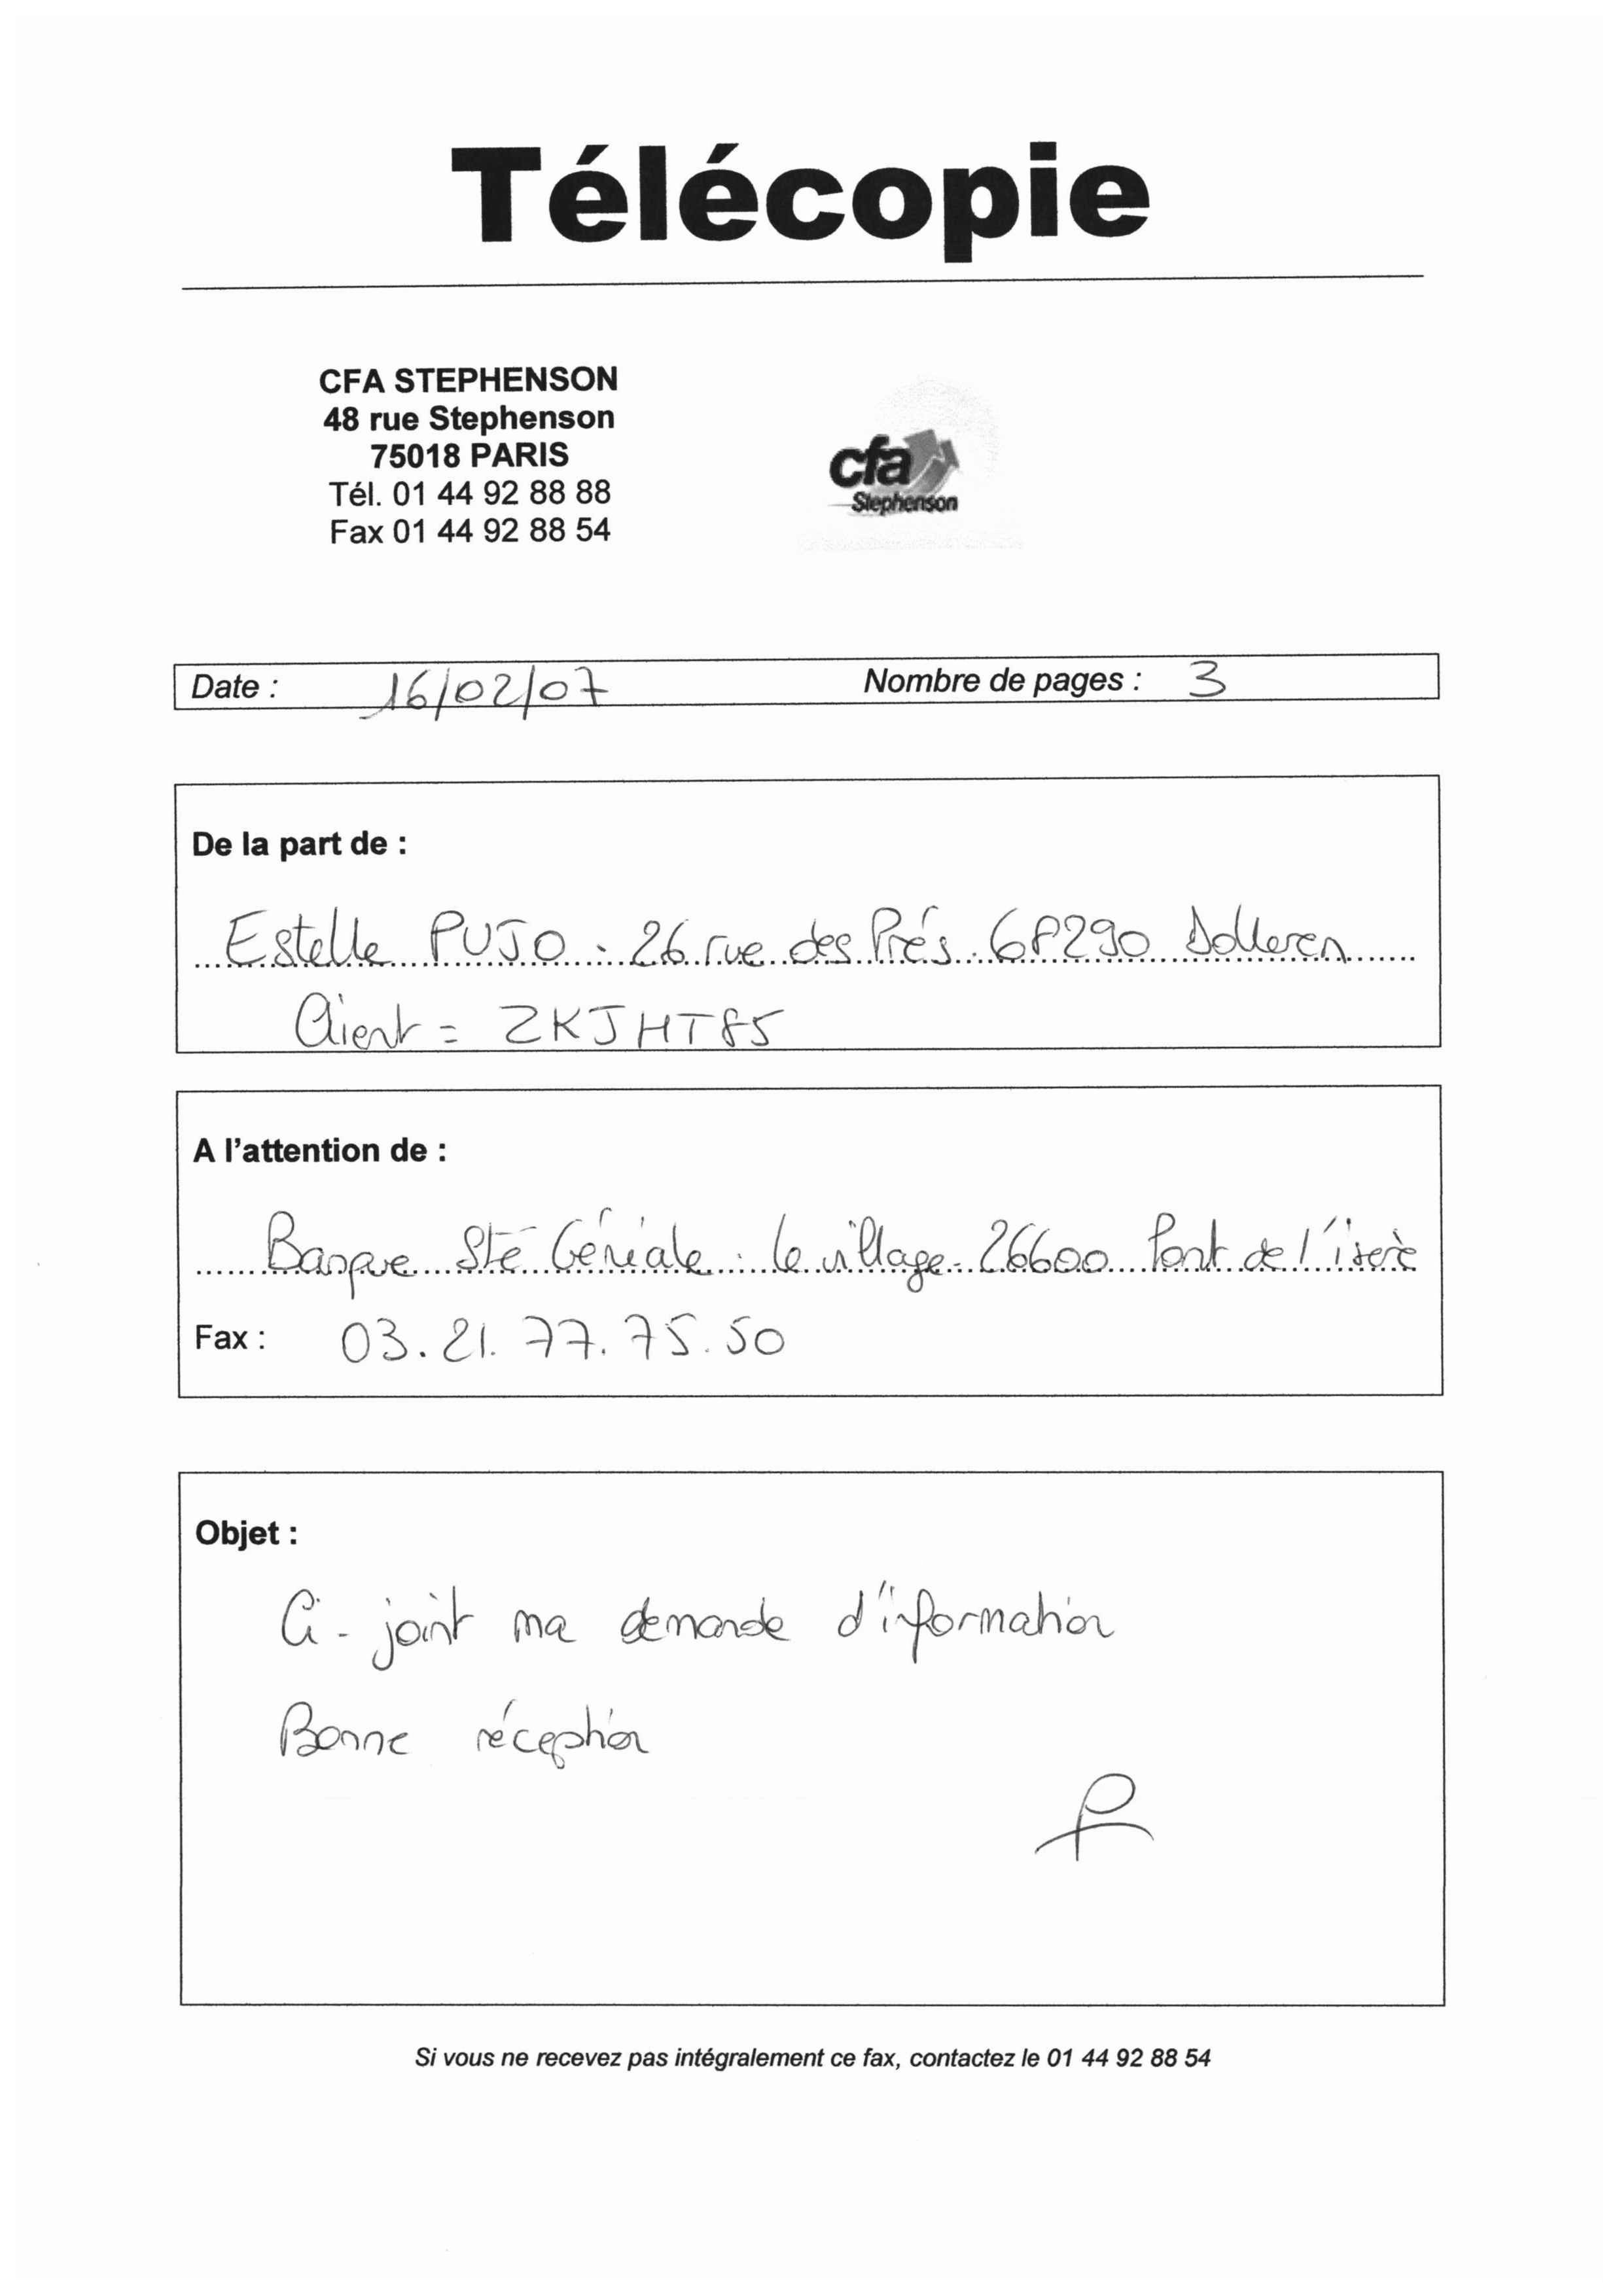 Télécopie
CFA STEPHENSON
48 rue Stephenson
75018 PARIS
Tél. 01 44 92 88 88
Fax 01 44 92 88 54
cfa
Stephenson
Date : 16/02/07 Nombre de pages : 3
De la part de :
Estelle PUJO. 26 rue des Prés. 68290 Dolleren
Client = ZKJHT85
A l'attention de :
Banque Sté Géniale. Le village - 26600 Pont de l'isere
Fax : 03.21.77.75.50
Objet :
Ci-joint ma demande d'information
Bonne réception
Si vous ne recevez pas intégralement ce fax, contactez le 01 44 92 88 54